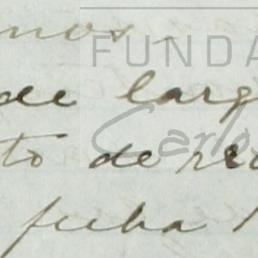 nos.
FUNDA
de larg
Carlo
to de re
fecha